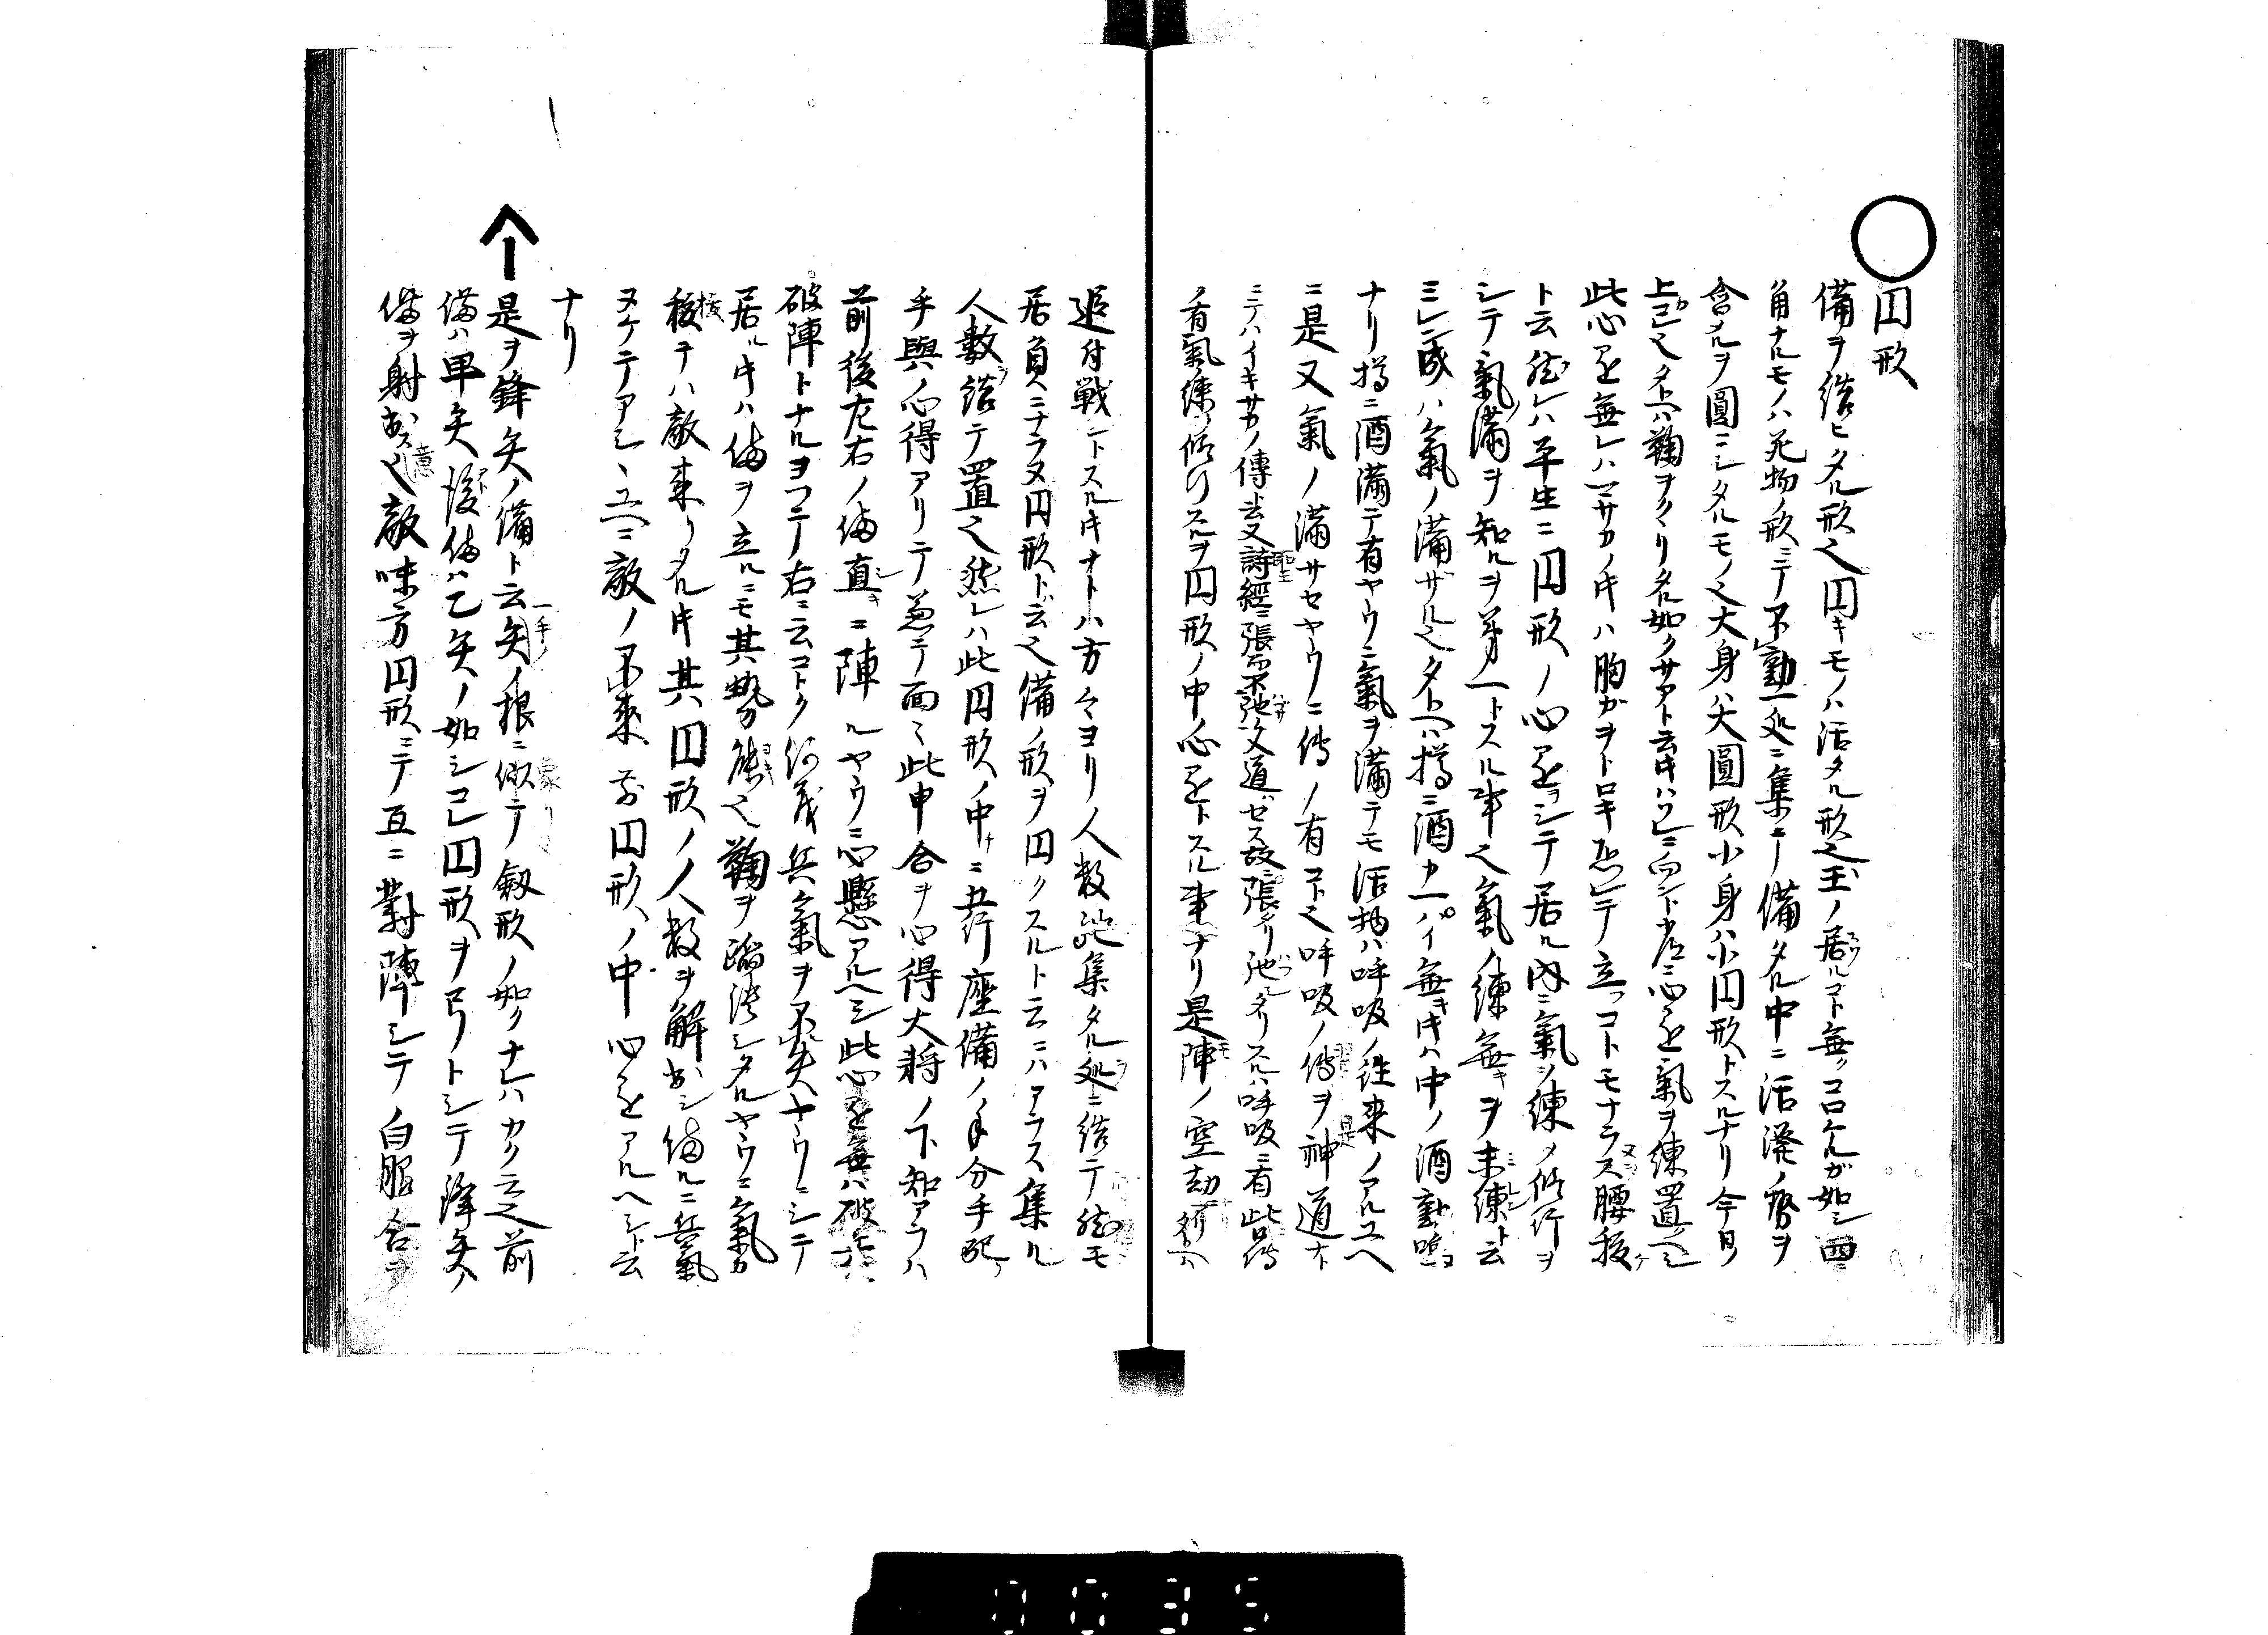 円形
備ヲ結ヒタル形也円キモノハ活タル形也玉ノ居ルコト無ノコロケルガ如シ四
角ナルモノハ死物ノ形ニテ不動一処ニ集テ備タル中ニ活溌ノ勢ヲ
含メルヲ圓ニシタルモノ也大身ハ大圓形小身ハ小円形トスルナリ今日ノ
鞠ヲククリタル如クサアト云トキハ
此心是無レハマサカノトキハ胸ガヲトロキ恐レテ立ツコトモナラス腰抜
ト云然レハ平生ニ円形ノ心是ヲシテ居ル内ニ氣ヲ練メ修行ヲ
シテ氣満ヲ知ルヲ第一トスル事也氣ノ練無キヲ未練ト云
ミレン成ハ氣ノ満ザル也タトヘハ樽ニ酒カ一パイ無キトキハ中ノ酒動
ナリ樽ニ酒満テ有ヤウニ氣ヲ満テモ活物ハ呼吸ノ往来ノアルユヘ
ニ是又氣ノ満サセヤウニ傳ノ有コト也呼吸ノ傳ヲ神道ナト
ニテハイキサカノ傳ト云又詩經ニ張而不弛文道ゼス故ニ張タリ弛タリスルハ呼吸ニ有此傳
ノ有氣練ノ修行スルヲ円形ノ中心是トスル事ナリ是陣ノ空劫
追付戦ントスルトキナトハ方々ヨリ人数馳集タル処ニ結テ然モ
居負ニナラヌ円形ト云也備ノ形ヲ円クスルト云ニハアラス集ル
人數結テ置也然レハ此円形ノ中ニ五行座備ノ手分手配
手與ノ心得アリテ兼テ面々此申合ヲ心得大将ノ下知アラハ
前後左右ノ備直ニ陣ルヤウニ心懸アルヘシ此心是無ハ
破陣トナルヲ以テ右ニ云コトク何茂兵氣ヲ不失ヤウニシテ
居ルトキハ備ヲ立ルニモ其勢能也鞠ヲ シタルヤウニ氣カ
抜テハ敵来リタルトキ其ハ円形ノ人数ヲ解出シ備ルニ兵氣
ヌケテアシヽユヘニ敵ノ不来前円形ノ中心是アルヘシト云
ナリ
是ヲ鋒矢ノ備ト云矢ノ根ニ似テ釼形ノ如クナレハカク云也前
備ハ甲矢後備ハ乙矢ノ如シコレ円形ヲ弓トシテ鋒矢ノ
備ヲ射出ス也敵味方円形ニテ互ニ對陣シテ白眼合ヲ